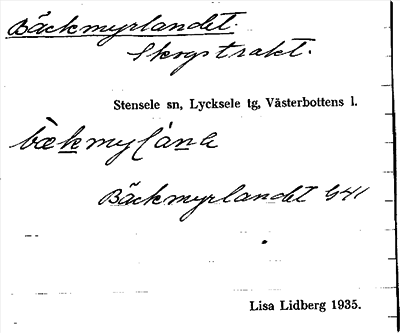 Bäckmyrlandet.
Skogstrakt.
Stensele sn, Lycksele tg, Västerbottens l.
Bäckmyrlandet
Lisa Lidberg 1935.